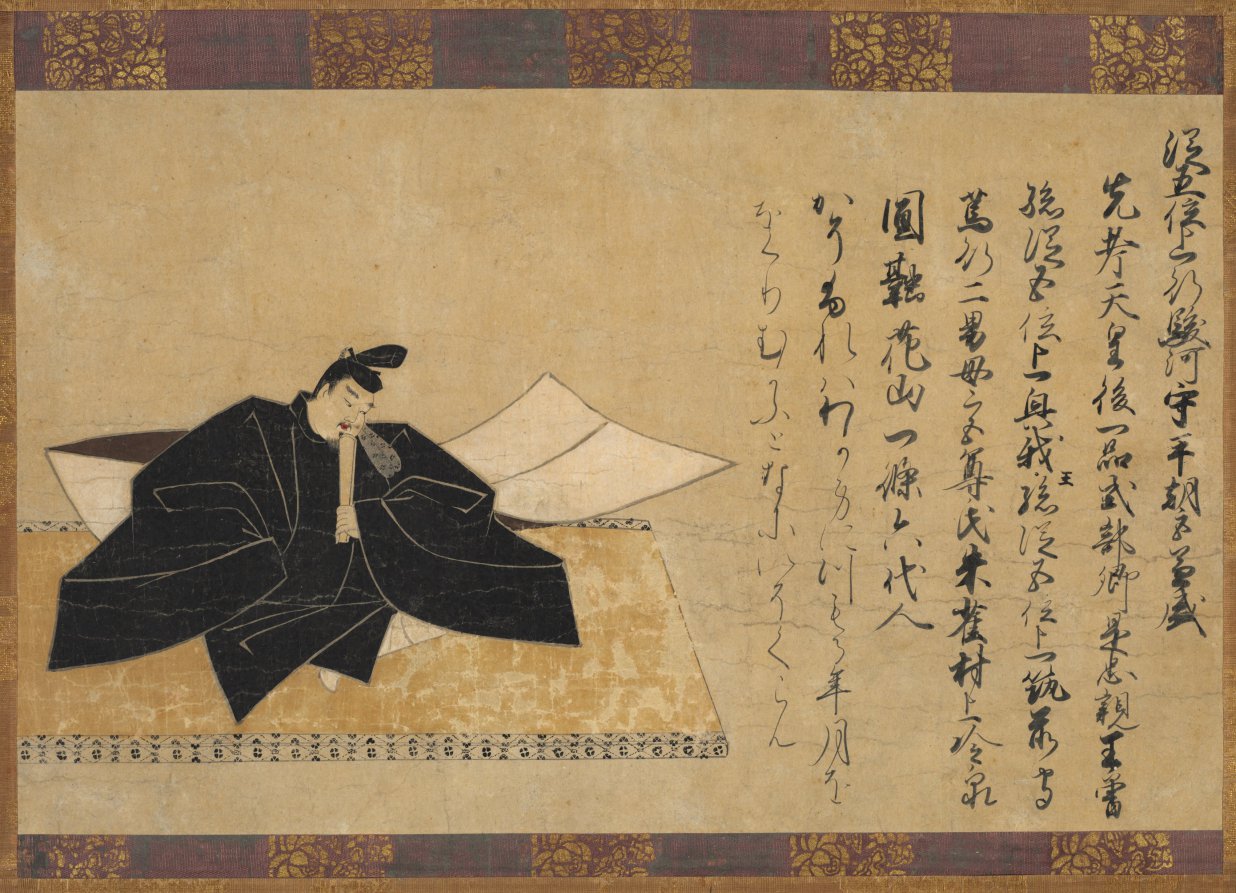 従五位上行駿河守平朝臣兼盛
光孝天皇後一品式部卿是忠親王曾
孫従五位上興我王孫従五位上筑前守
篤行二男母 朱雀村上冷泉
圓融花山一條六代人
かそふれハわか身につもる年月を
をくりむかふとなにいそくらん